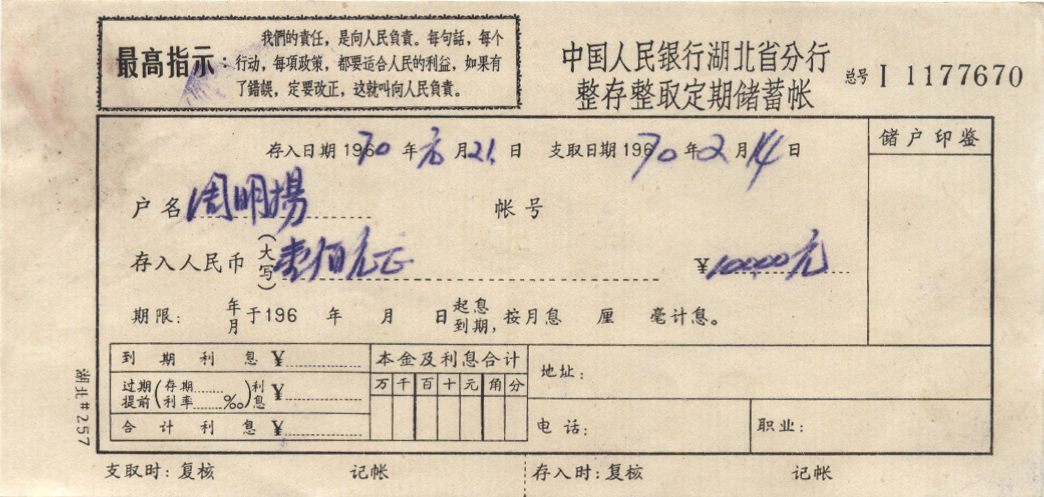 最高指示:
我們的責任，是向人民負責。每句話，每个
行动，每項政策，都要适合人民的利益，如果有
了錯誤，定要改正，这就叫向人民負責。
中国人民银行湖北省分行
整存整取定期储蓄帐
总号 I 1177670
存入日期 19670年元月21日 支取日期 19670年2月14日
储户印鉴
户名周明揚 帐号
存入人民币(大写)壹佰元正 ¥10000元
期限: 年月于196 年 月 日起息到期，按月息 厘 毫计息。
到期利息 ¥
本金及利息合计
万千百十元角分
过期提前(存期......利率......‰)利息 ¥
合计利息 ¥
地址:
电话: 职业:
湖北#257
支取时:复核 记帐 存入时:复核 记帐